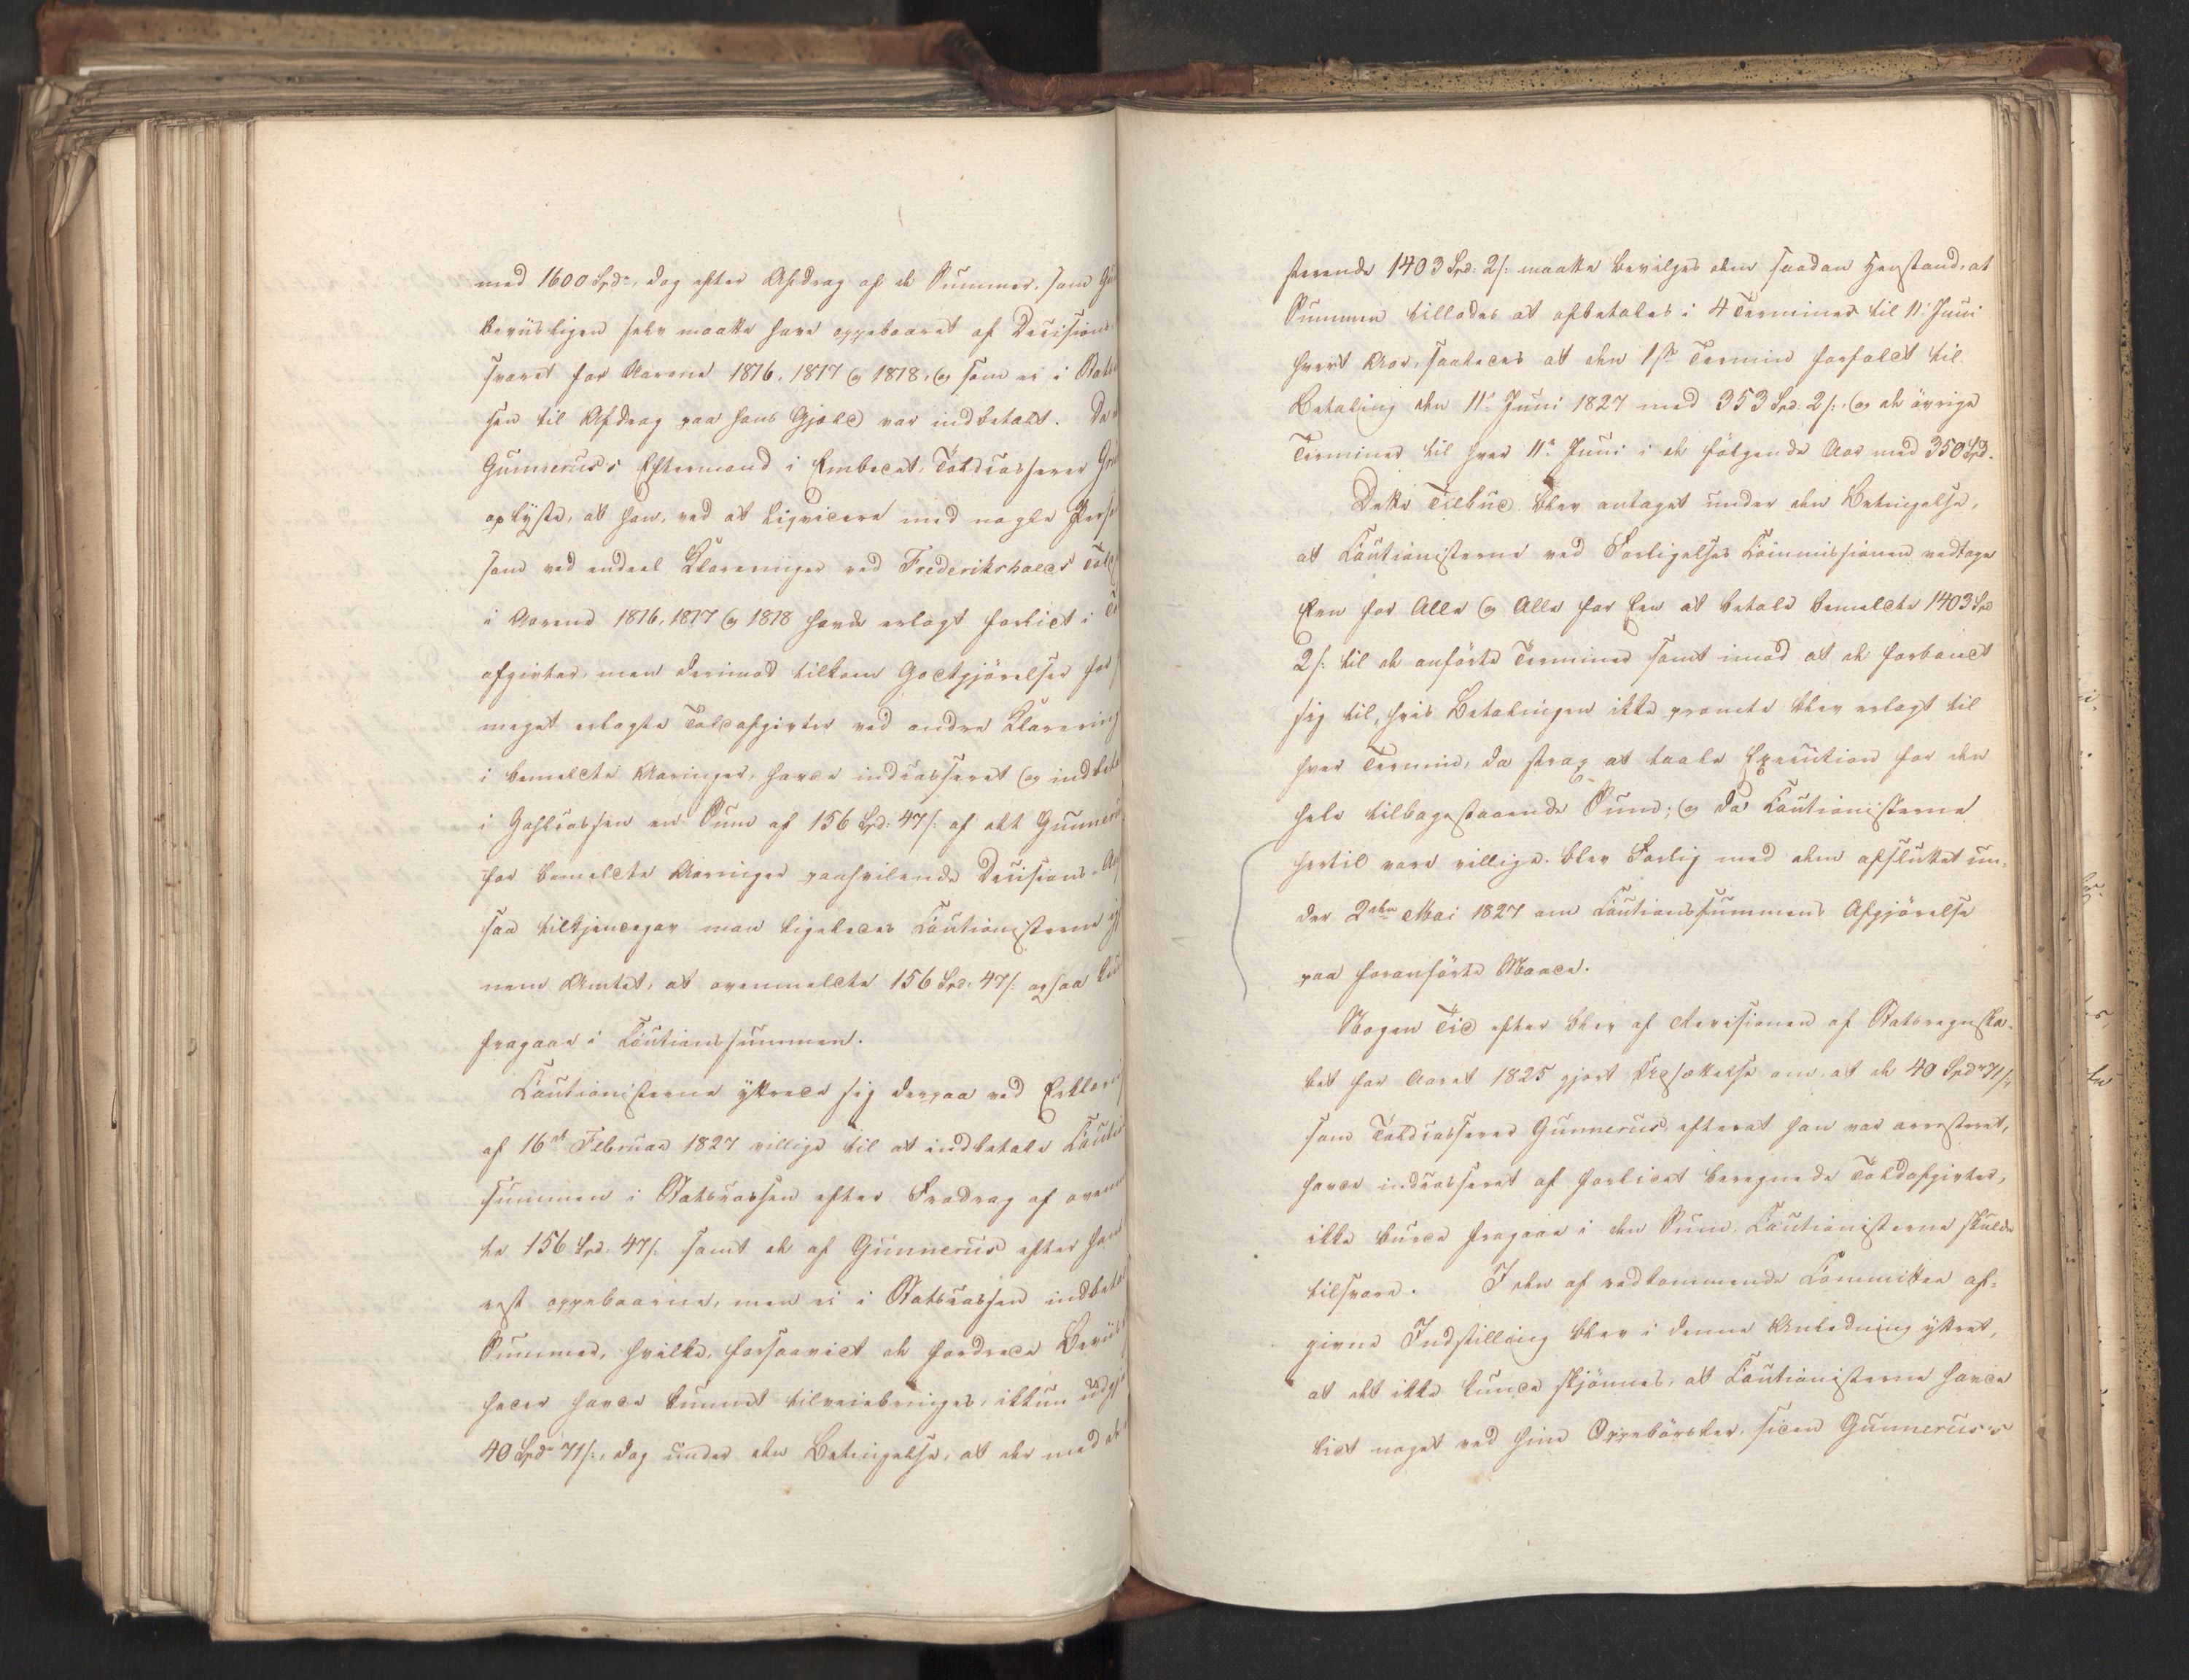 med 1600 Spd., dog efter Afdrag af de Summer, som Gu
beviisligen selv maatte have oppebaaret af Decisions-
svaret for Aarene 1816, 1817 og 1818, og som ei i Stats
sen til Afdrag paa hans Gjæld var indbetalt. Da
Gunnerus's Eftermand i Embedet, Toldcasserer
oplyste, at han, ved at liqvidere med nogle Perso
som ved endeel Klareringer ved Frederikshalds Told
i Aarene 1816, 1817 og 1818 havde erlagt forlidt i To
afgivter, men derimod tilkom Godtgjörelser for
meget erlagte Toldafgivter ved andre Klarering
i bemeldte Aaringer, havde indcasseret og indbeta
i Hoftcassen en Sum af 156 Spd. 47 s. af det Gunneru
for bemeldte Aaringer paahvilende Decisions-An
saa tilkjendegav man ligeledes Cautionisterne igj
nem Amtet, at ovenmeldte 156 Spd. 47 s. ogsaa
fragaae i Cautionssummen.
Cautionisterne yttrede sig derpaa ved Erklæri
af 16de Februar 1827 villige til at indbetale Cauti
summen i Statscassen efter Fradrag af ovenm
te 156 Spd. 47 s. samt de af Gunnerus efter hans
rest oppebaarne, men ei i Statscassen indbeta
Summer, hvilke, forsaavidt de fordrede Beviis
heder havde kunnet tilveiebringes, ikkun udgj
40 Spd. 71 s., dog under den Betingelse, at der med de
sterende 1403 Spd. 2 s. maatte bevilges dem saadan Henstand, at
Summen tillodes at afbetales i 4 Terminer til 11te Juni
hvert Aar, saaledes at den 1ste Termin forfaldt til
Betaling den 11te Juni 1827 med 353 Spd. 2 s., og de övrige
Terminer til hver 11te Juni i de fölgende Aar med 350 Spd.
Dette Tilbud blev antaget under den Betingelse,
at Cautionisterne ved Forligelses Commissionen vedtoge
Een for Alle og Alle for Een at betale bemeldte 1403 Spd.
2 s. til de anförte Terminer samt imod at de forbandt
sig til, hvis Betalingen ikke promte blev erlagt til
hver Termin, da strax at taale Execution for den
hele tilbagestaaende Sum; og da Cautionisterne
hertil vare villige, blev Forlig med dem afsluttet un-
der 2den Mai 1827 om Cautionssummens Afgjörelse
paa foranförte Maade.
Nogen Tid efter blev af Revisionen af Statsregnska-
bet for Aaret 1825 gjort Udsættelse om, at de 40 Spd. 71 s.,
som Toldcasserer Gunnerus, efterat han var arresteret,
havde indcasseret af forlidet beregnede Toldafgivter,
ikke burde fragaae i den Sum, Cautionisterne skulde
tilsvare. I den af vedkommende Committee af-
givne Indstilling blev i denne Anledning yttret,
at det ikke kunde skjönnes, at Cautionisterne havde
lidt noget ved hine Oppebörsler, siden Gunnerus's